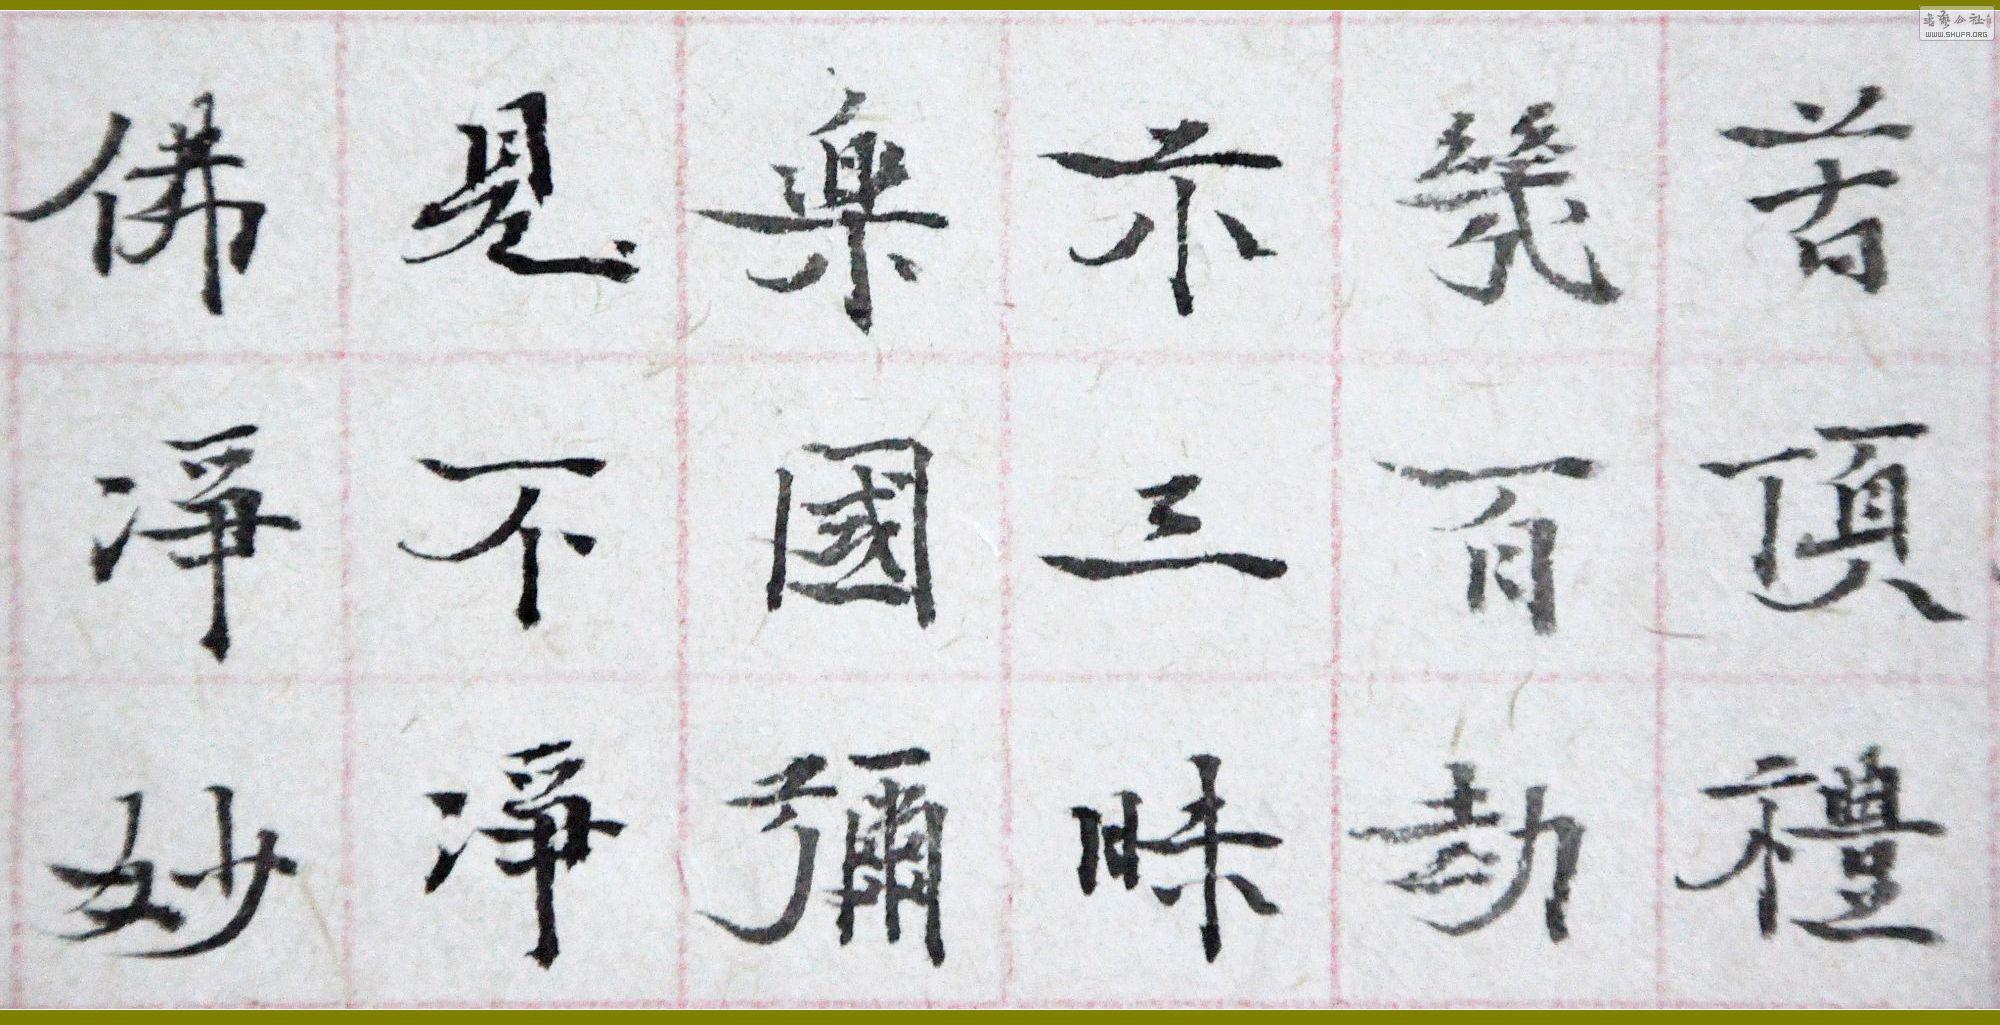 首頂禮
幾百劫
示三昧
樂國彌
見不淨
佛淨妙
書藝公社
WWW.SHUFA.ORG